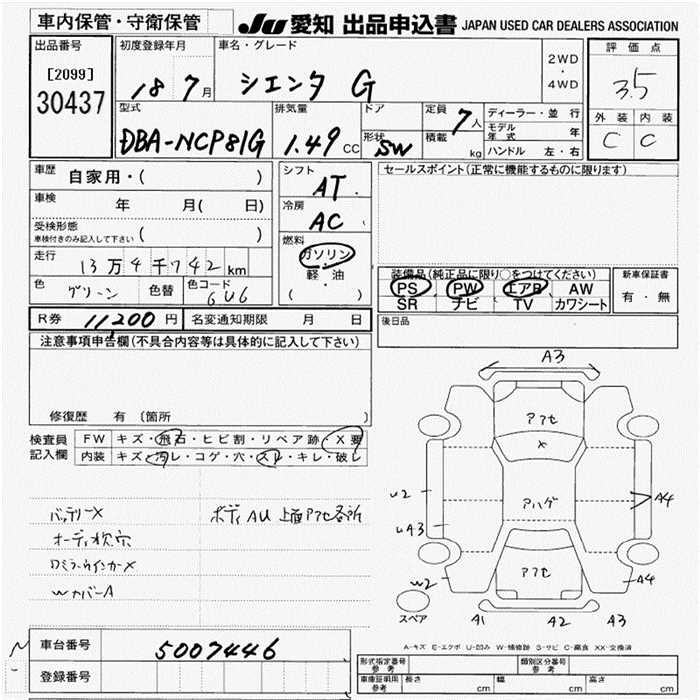 車内保管・守衛保管
JU 愛知 出品申込書 JAPAN USED CAR DEALERS ASSOCIATION
出品番号
[2099]
30437
初度登録年月
18 7月
車名・グレード
シエンタ G
2WD
・
4WD
評価点
3.5
外装 内装
C C
型式
DBA-NCP81G
排気量
1.49 CC
ドア
形状
SW
定員
7人
積載
kg
ディーラー・並行
モデル年式 年
ハンドル 左・右
車歴
自家用・( )
車検
年 月( 日)
受検形態
車検付きのみ記入して下さい ( )
走行
13万4千742km
色
グリーン
色替
色コード
6U6
シフト
AT
冷房
AC
燃料
ガソリン
・
軽・油
( )
セールスポイント(正常に機能するものに限ります)
装備品(純正品に限り○をつけてください)
PS PW エアB AW
SR ナビ TV カワシート
新車保証書
有・無
後日品
R券 11,200円
名変通知期限 月 日
注意事項申告欄(不具合内容等は具体的に記入して下さい)
修復歴 有 〔箇所 〕
検査員
記入欄
FW キズ・飛石・ヒビ割・リペア跡・X要
内装 キズ・汚レ・コゲ・穴・スレ・キレ・破レ
バッテリーX
ボディAU 上面アクセ各所
オーディオ欠穴
RミラーウインカーX
WカバーA
A3
アクセ
X
アハゲ
アクセ
U2
UA3
W2
A4
A4
A1 A2 A3
スペア
A-キズ E-エクボ U-凹み W-補修跡 S-サビ C-腐食 XX-交換済
車台番号
5007446
登録番号
形式指定番号
参考
類別区分番号
参考
車庫証明用
参考
長さ cm
幅 cm
高さ cm